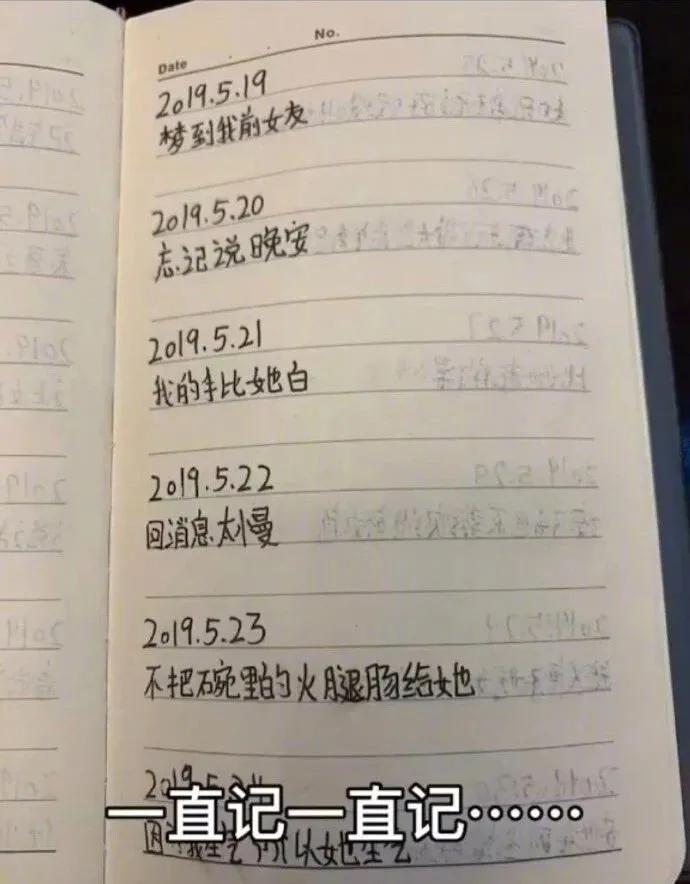 Date
No.
2019.5.19
梦到我前女友
2019.5.20
忘记说晚安
2019.5.21
我的手比她白
2019.5.22
回消息太慢
2019.5.23
不把碗里的火腿肠给她
2019.5.24
一直记一直记……
因 我生气 所以她生气